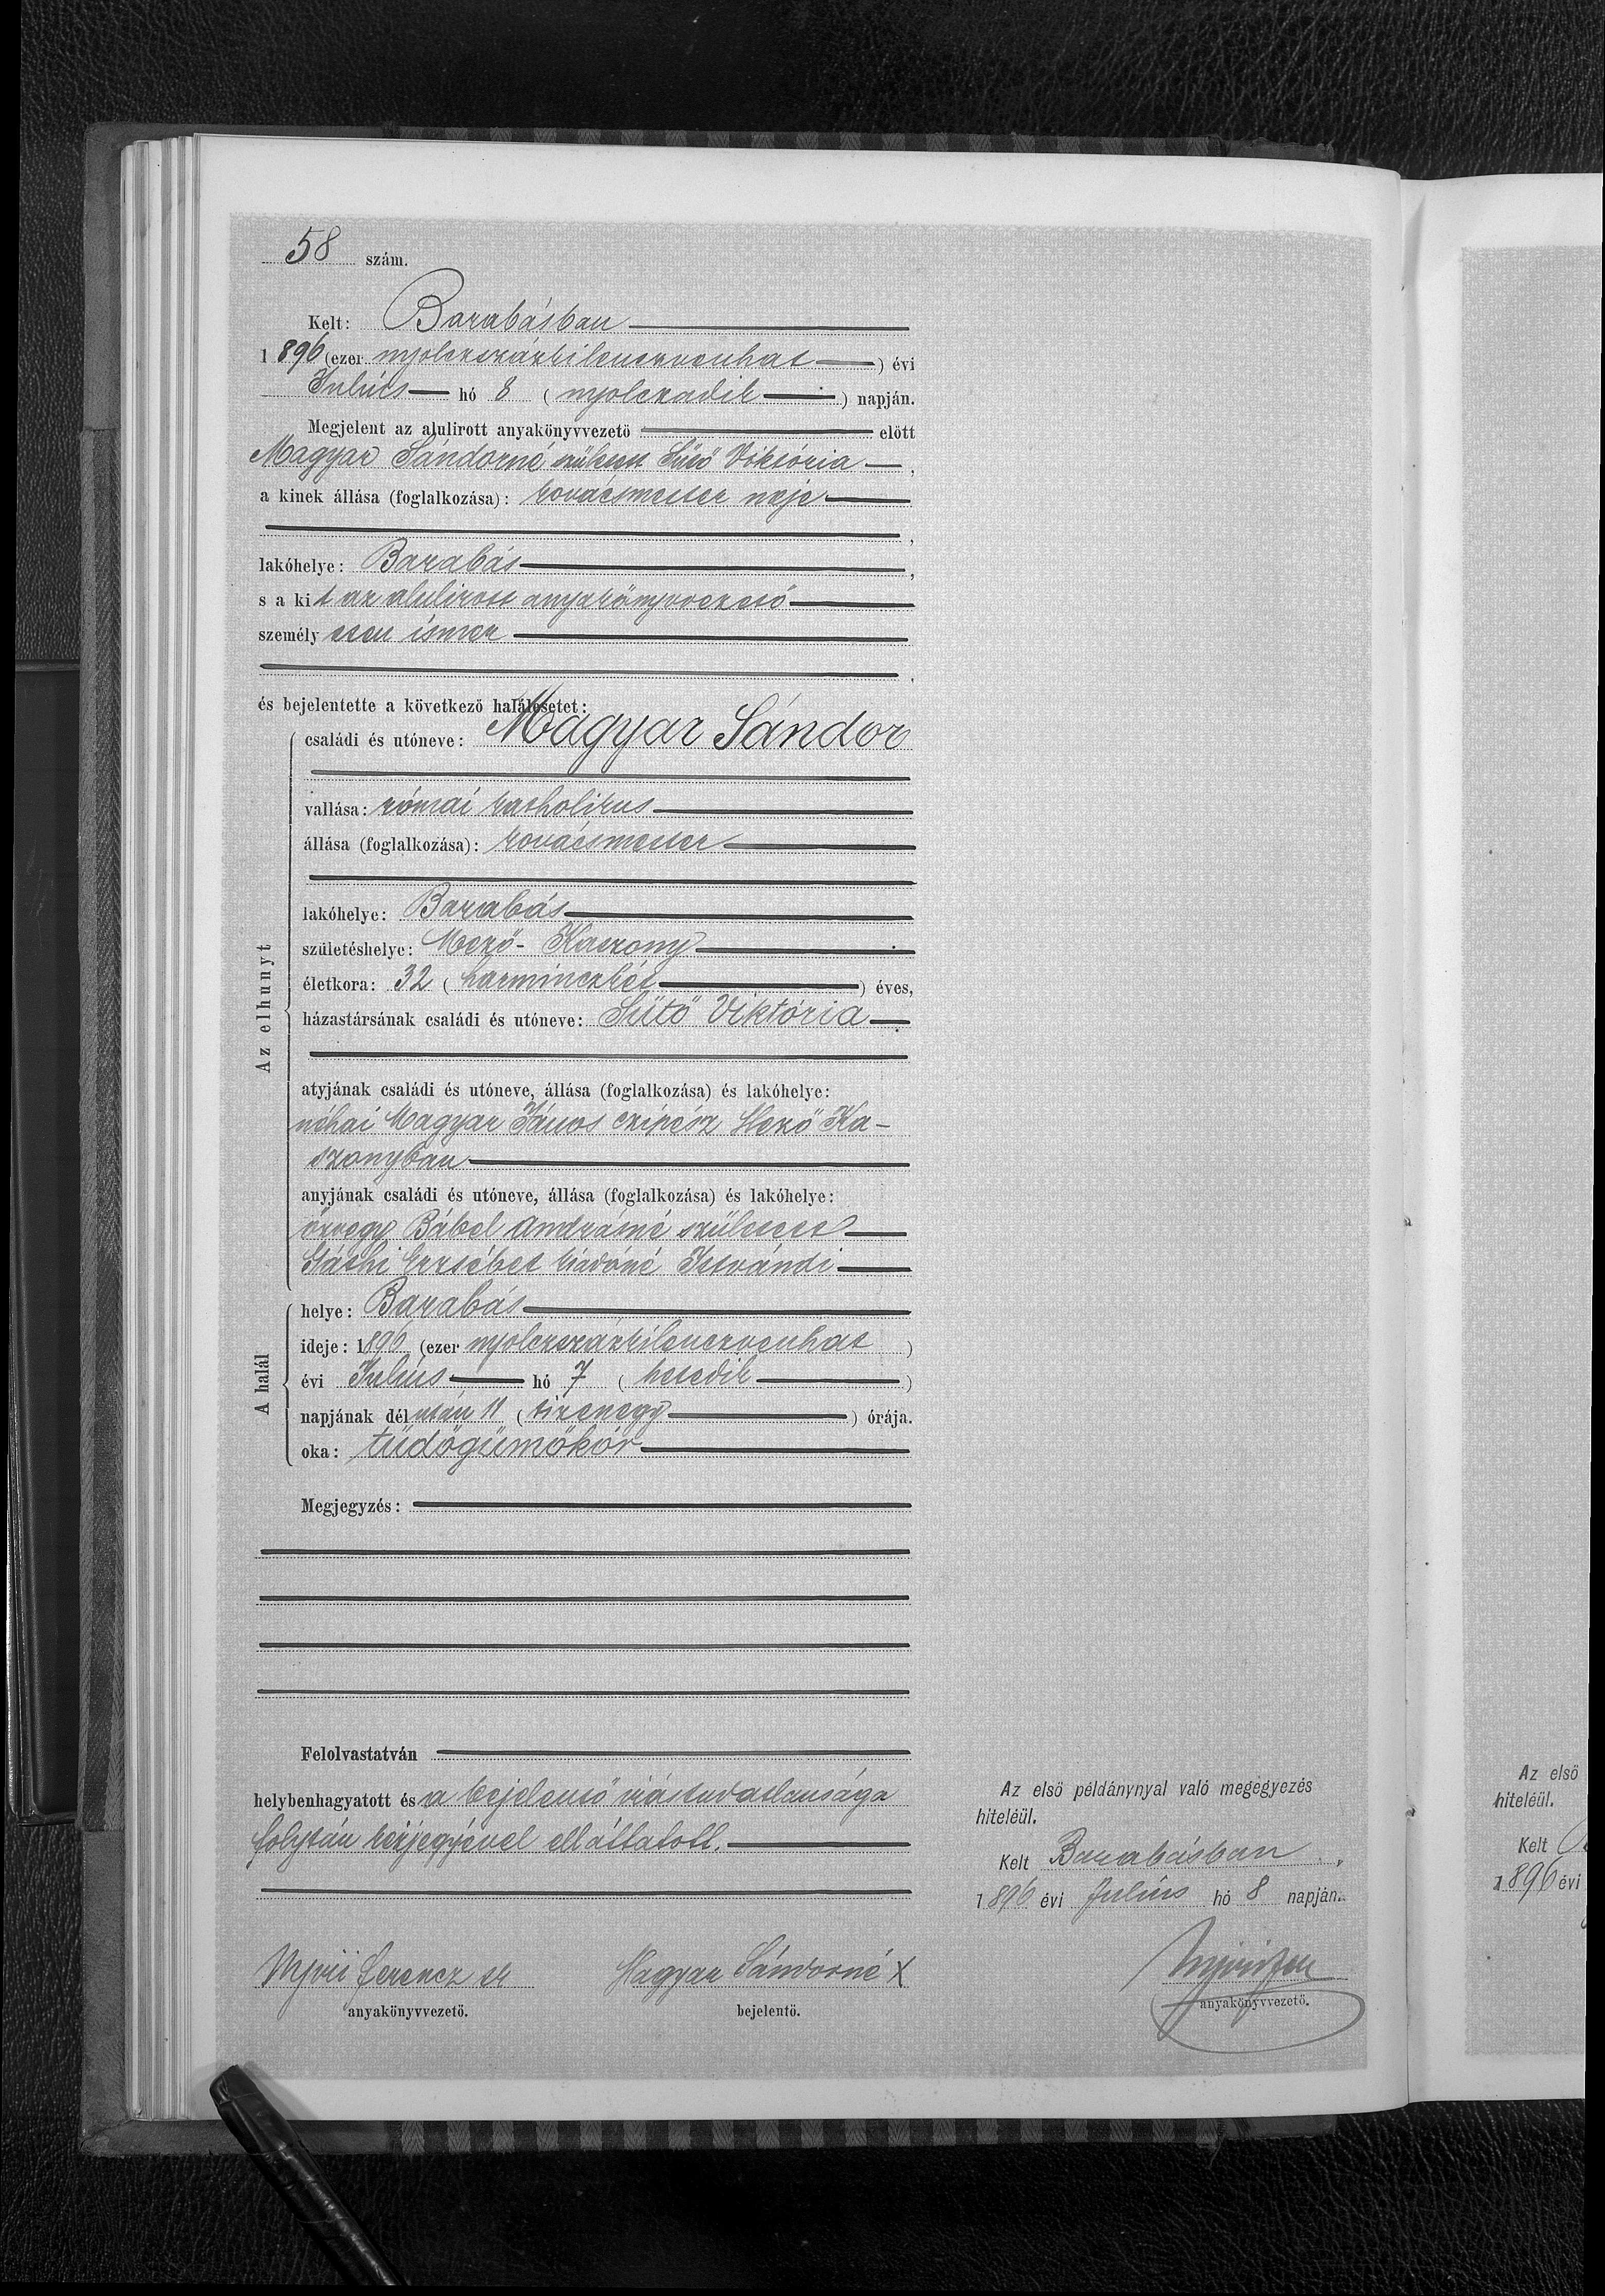 58 szám.
Kelt: Barabásban
1896 (ezer nyolczszázkilenczvenhat) évi
Julius hó 8 (nyolczadik) napján.
Megjelent az alulirott anyakönyvvezető előtt
Magyar Sándorné született Sütő Viktória,
a kinek állása (foglalkozása): kovácsmester neje
,
lakóhelye: Barabás,
s a kit az alulirott anyakönyvvezető
személyesen ismer
,
és bejelentette a következő halálesetet:
Az elhunyt
családi és utóneve: Magyar Sándor
vallása: római katholikus
állása (foglalkozása): kovácsmester
lakóhelye: Barabás
születéshelye: Mező-Kaszony
életkora: 32 (harminczkét) éves,
házastársának családi és utóneve: Sütő Viktória
atyjának családi és utóneve, állása (foglalkozása) és lakóhelye:
néhai Magyar János czipész Mező Ka-
szonyban
anyjának családi és utóneve, állása (foglalkozása) és lakóhelye:
özvegy Bábel Andrásné született
Erzsébet Istvándi
A halál
helye: Barabás
ideje: 1896 (ezer nyolczszázkilenczvenhat)
évi Julius hó 7 (hetedik)
napjának délután 11 (tizenegy) órája.
oka: tüdőgümőkór
Megjegyzés:
Felolvastatván
helybenhagyatott és a bejelentő irástudatlansága
folytán kézjegyével elláttatott.
Nyiri Ferencz sk
anyakönyvvezető.
Magyar Sándorné X
bejelentő.
Az első példánynyal való megegyezés
hiteléül.
Kelt Barabásban,
1896 évi Julius hó 8 napján.
anyakönyvvezető.
Az első
hiteléül.
Kelt
1896 évi